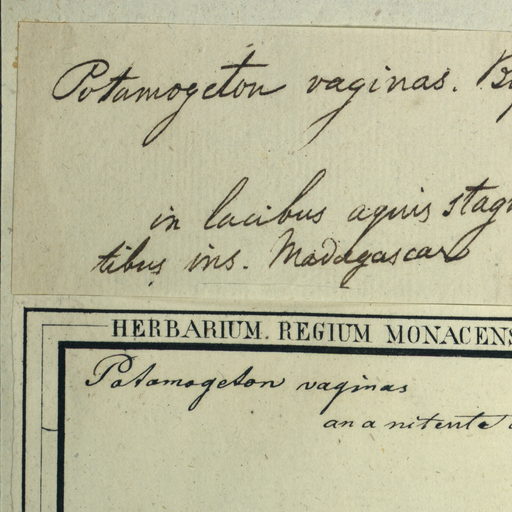 Potamogeton vaginas.
in lacibus aquis stagn
tibus ins. Madagascar
HERBARIUM. REGIUM MONACENS
Potamogeton vaginas
an a nitente